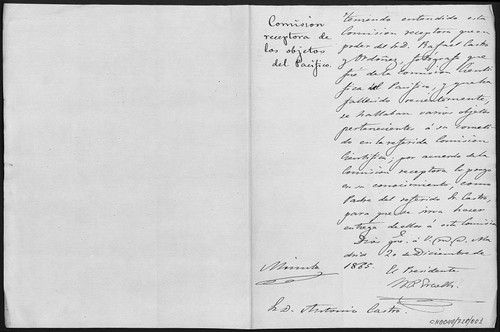 Comision
receptora de
los objetos
del Pacifico.
Teniendo entendido esta
Comision receptora que en
poder del Sr. D. Rafael Castro
y Ordoñez, fotógrafo que
fué de la Comision Cientí-
fica del Pacifico, y que ha
fallecido recientemente,
se hallaban varios objetos
pertenecientes á su cometi-
do en la referida Comision
Científica, por acuerdo de la
Comision receptora lo pongo
en su conocimiento, como
Padre del referido Sr. Castro,
para que se sirva hacer
entrega de ellos á esta Comision
Dios gue. á V. m. a. Ma-
drid 20 de Diciembre de
1865.
El Presidente
Minuta
Sr. D. Antonio Castro.